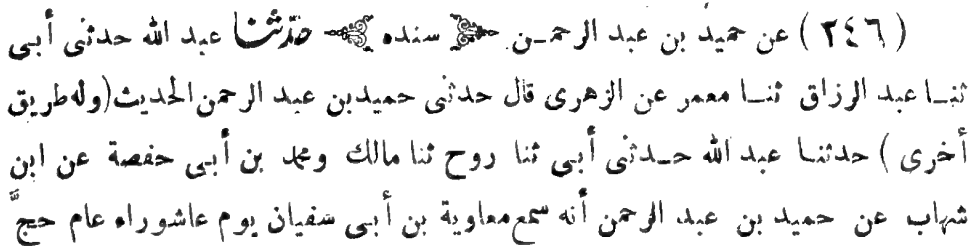 ( ٢٤٦ ) عن حميد بن عبد الرحمـن ﴿ سنده ﴾ حدّثنا عبد الله حدثنى أبى
ثنـا عبد الرزاق ثنـا معمر عن الزهرى قال حدثنى حميد بن عبد الرحمن الحديث (وله طريق
أخرى ) حدثنـا عبد الله حـدثنى أبى ثنا روح ثنا مالك ومحمد بن أبـى حفصة عن ابن
شهاب عن حميد بن عبد الرحمن أنه سمع معاوية بن أبـى سفيان يوم عاشوراء عام حجَّ